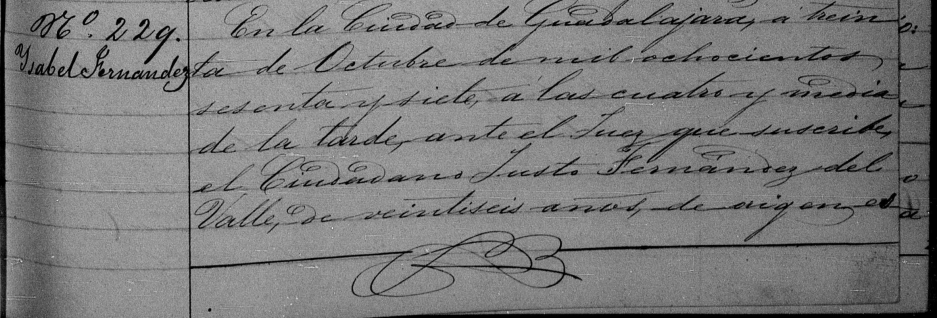 Nº. 229.
Ysabel Fernandez
En la Ciudad de Guadalajara, á trein
ta de Octubre de mil ochocientos
sesenta y siete, á las cuatro y media
de la tarde, ante el Juez que suscribe,
el Ciudadano Justo Fernández del
Valle, de veintiseis años, de origen es